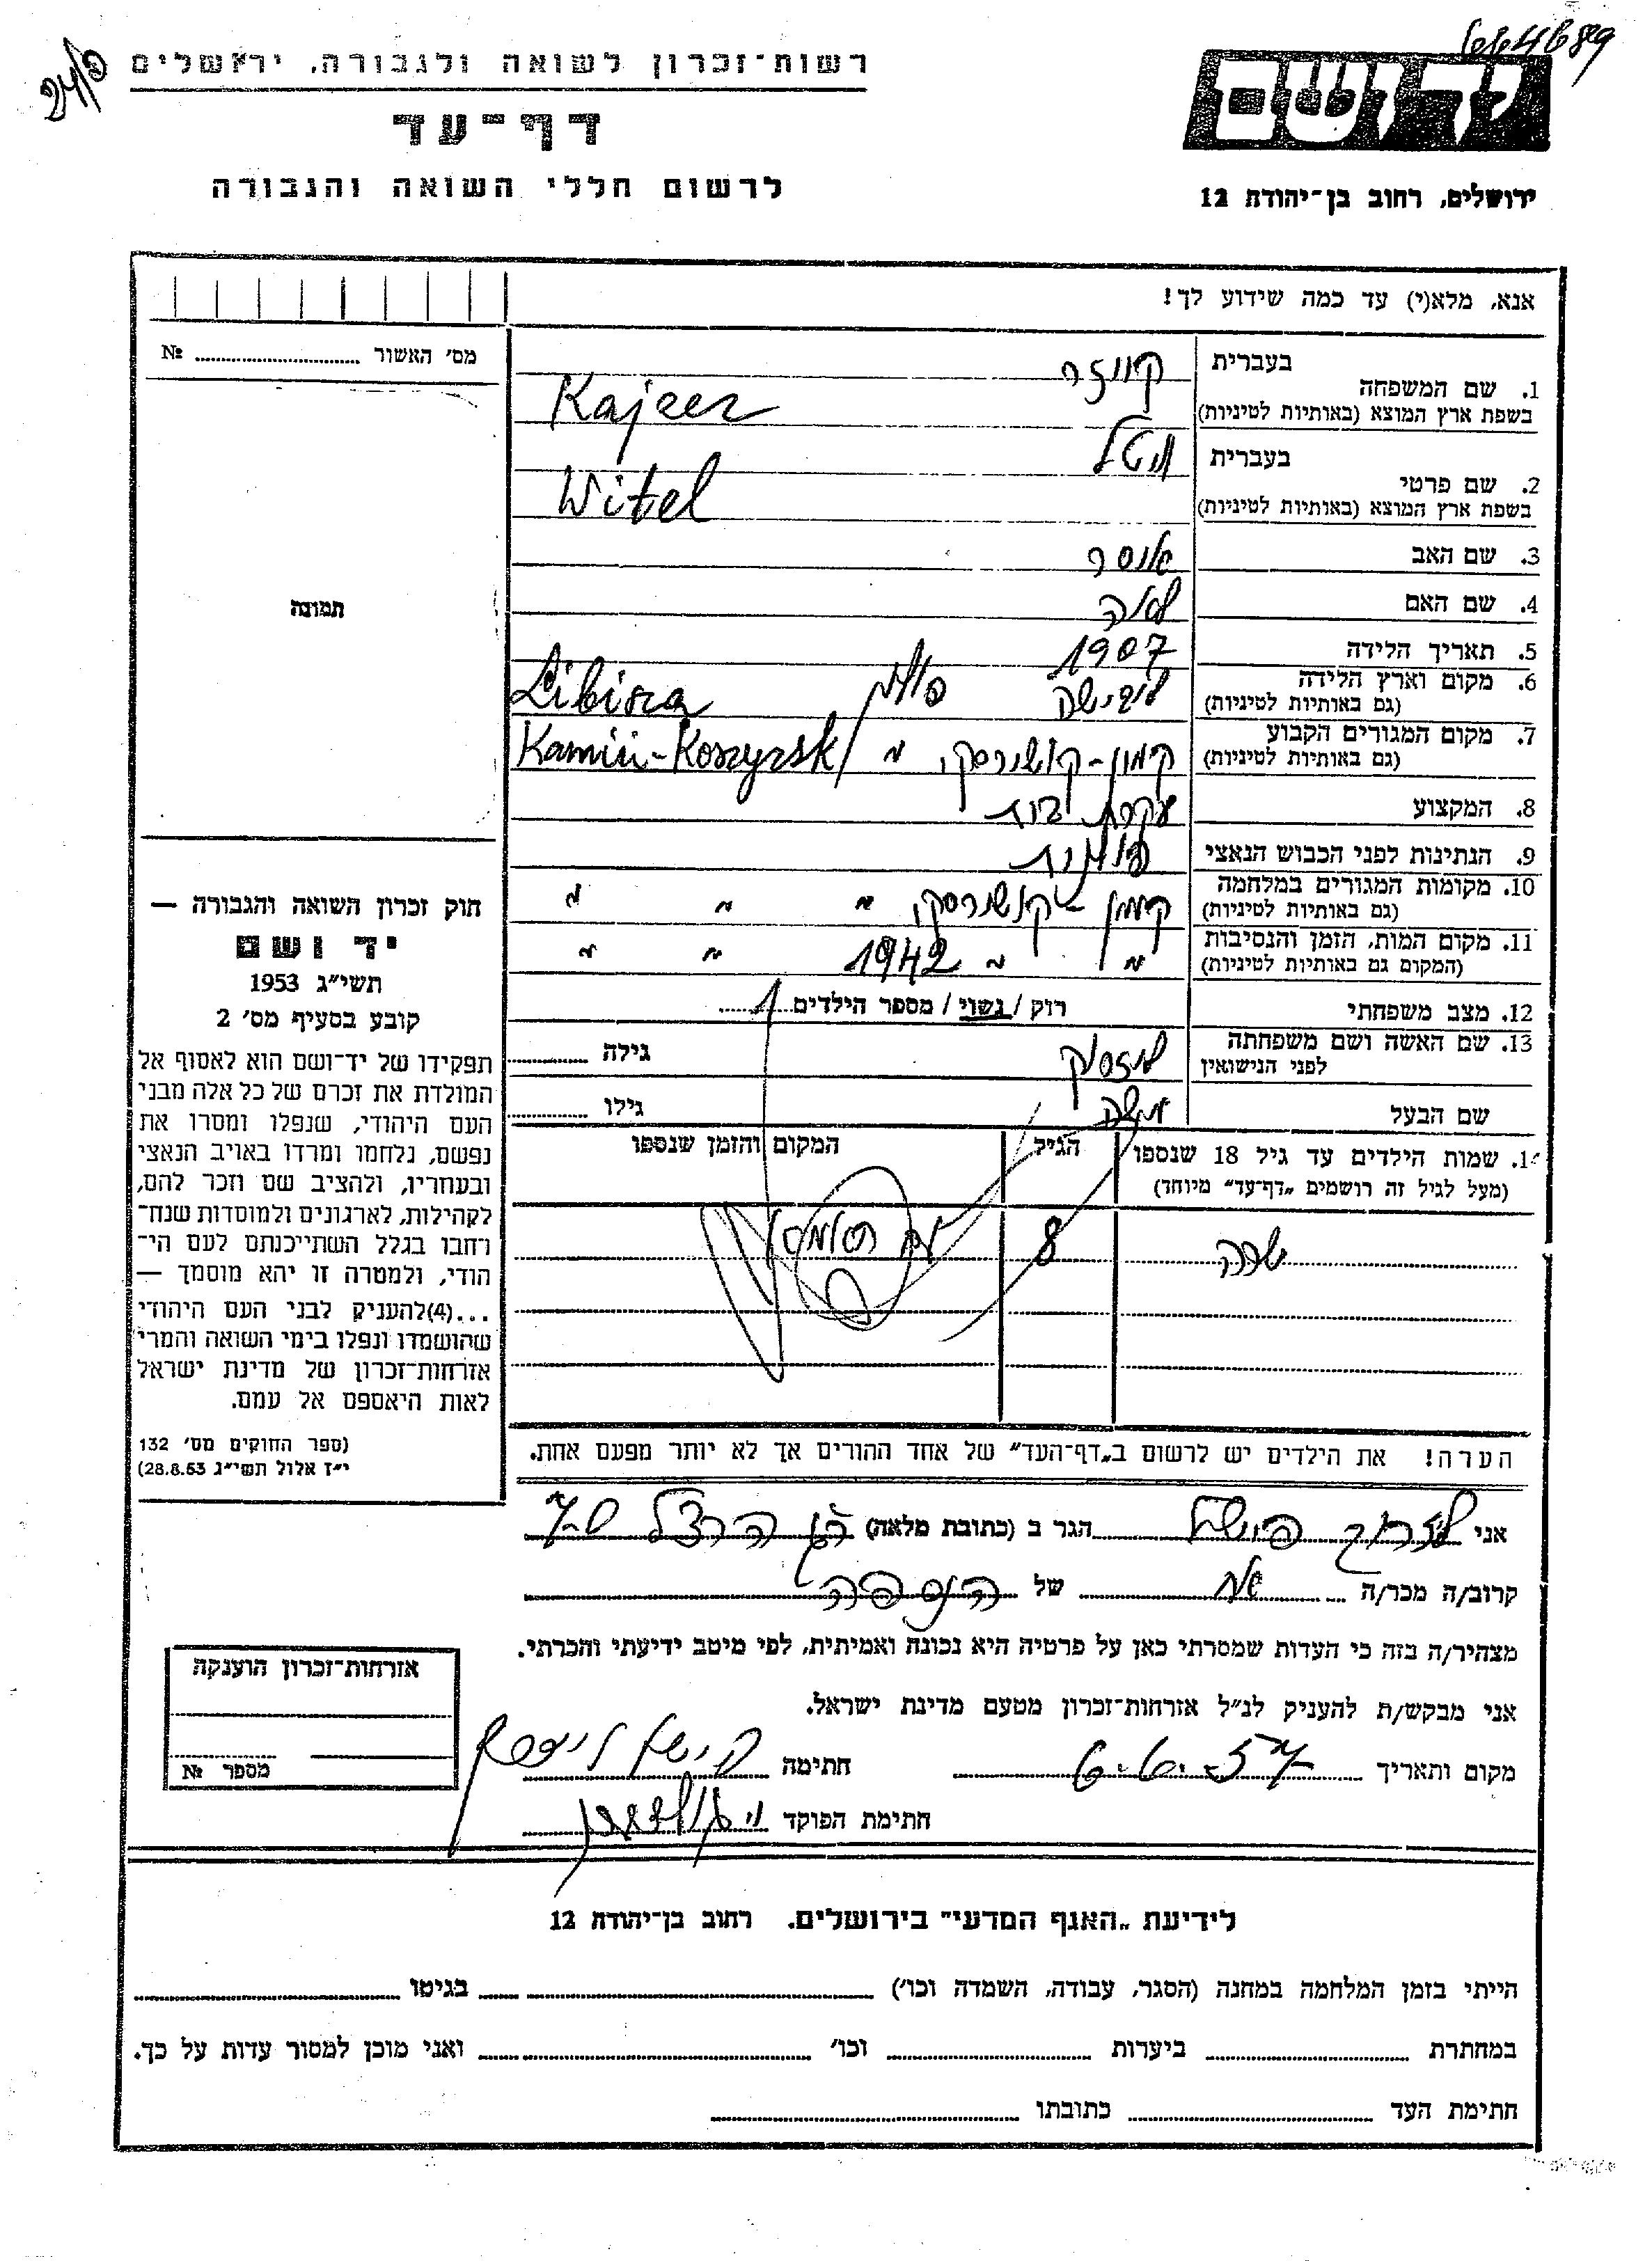 6646589
24/פ
יד ושם
רשות־זכרון לשואה ולגבורה, ירושלים
דף־עד
לרשום חללי השואה והגבורה
ירושלים, רחוב בן־יהודה 12
אנא, מלא(י) עד כמה שידוע לך!
מס׳ האשור № 
בעברית
1. שם המשפחה
בשפת ארץ המוצא (באותיות לטיניות) Kajzer
בעברית ויטל
2. שם פרטי
בשפת ארץ המוצא (באותיות לטיניות) Witel
3. שם האב
4. שם האם לאה
5. תאריך הלידה 1907
6. מקום וארץ הלידה
(גם באותיות לטיניות) ליבישה פולין Libisza
7. מקום המגורים הקבוע
(גם באותיות לטיניות) קמין-קושירסקי " Kamiń-Koszyrsk
8. המקצוע עקרת בית
9. הנתינות לפני הכבוש הנאצי פולנית
10. מקומות המגורים במלחמה
(גם באותיות לטיניות) קמין קושירסקי " " "
11. מקום המות, הזמן והנסיבות
(המקום גם באותיות לטיניות) " " 1942 " "
12. מצב משפחתי רוק / נשוי / מספר הילדים 1
13. שם האשה ושם משפחתה
לפני הנישואין גילה
שם הבעל משה גילו
14. שמות הילדים עד גיל 18 שנספו הגיל המקום והזמן שנספו
(מעל לגיל זה רושמים „דף־עד״ מיוחד)
שרה 8
הערה! את הילדים יש לרשום ב„דף־העד״ של אחד ההורים אך לא יותר מפעם אחת.
תמונה
חוק זכרון השואה והגבורה —
יד ושם
תשי״ג 1953
קובע בסעיף מס׳ 2
תפקידו של יד־ושם הוא לאסוף אל
המולדת את זכרם של כל אלה מבני
העם היהודי, שנפלו ומסרו את
נפשם, נלחמו ומרדו באויב הנאצי
ובעוזריו, ולהציב שם וזכר להם,
לקהילות, לארגונים ולמוסדות שנח־
רבו בגלל השתייכותם לעם הי־
הודי, ולמטרה זו יהא מוסמך —
...(4)להעניק לבני העם היהודי
שהושמדו ונפלו בימי השואה והמרי
אזרחות־זכרון של מדינת ישראל
לאות היאספם אל עמם.
(ספר החוקים מס׳ 132
י״ז אלול תשי״ג 28.8.53)
אני הגר ב (כתובת מלאה)
קרוב/ה מכר/ה של
מצהיר/ה בזה כי העדות שמסרתי כאן על פרטיה היא נכונה ואמיתית, לפי מיטב ידיעתי והכרתי.
אני מבקש/ת להעניק לנ״ל אזרחות־זכרון מטעם מדינת ישראל.
מקום ותאריך חתימה
חתימת הפוקד
אזרחות־זכרון הוענקה
מספר №
לידיעת „האגף המדעי״ בירושלים. רחוב בן־יהודה 12
הייתי בזמן המלחמה במחנה (הסגר, עבודה, השמדה וכו׳) בגיטו
במחתרת ביערות וכו׳ ואני מוכן למסור עדות על כך.
חתימת העד כתובתו